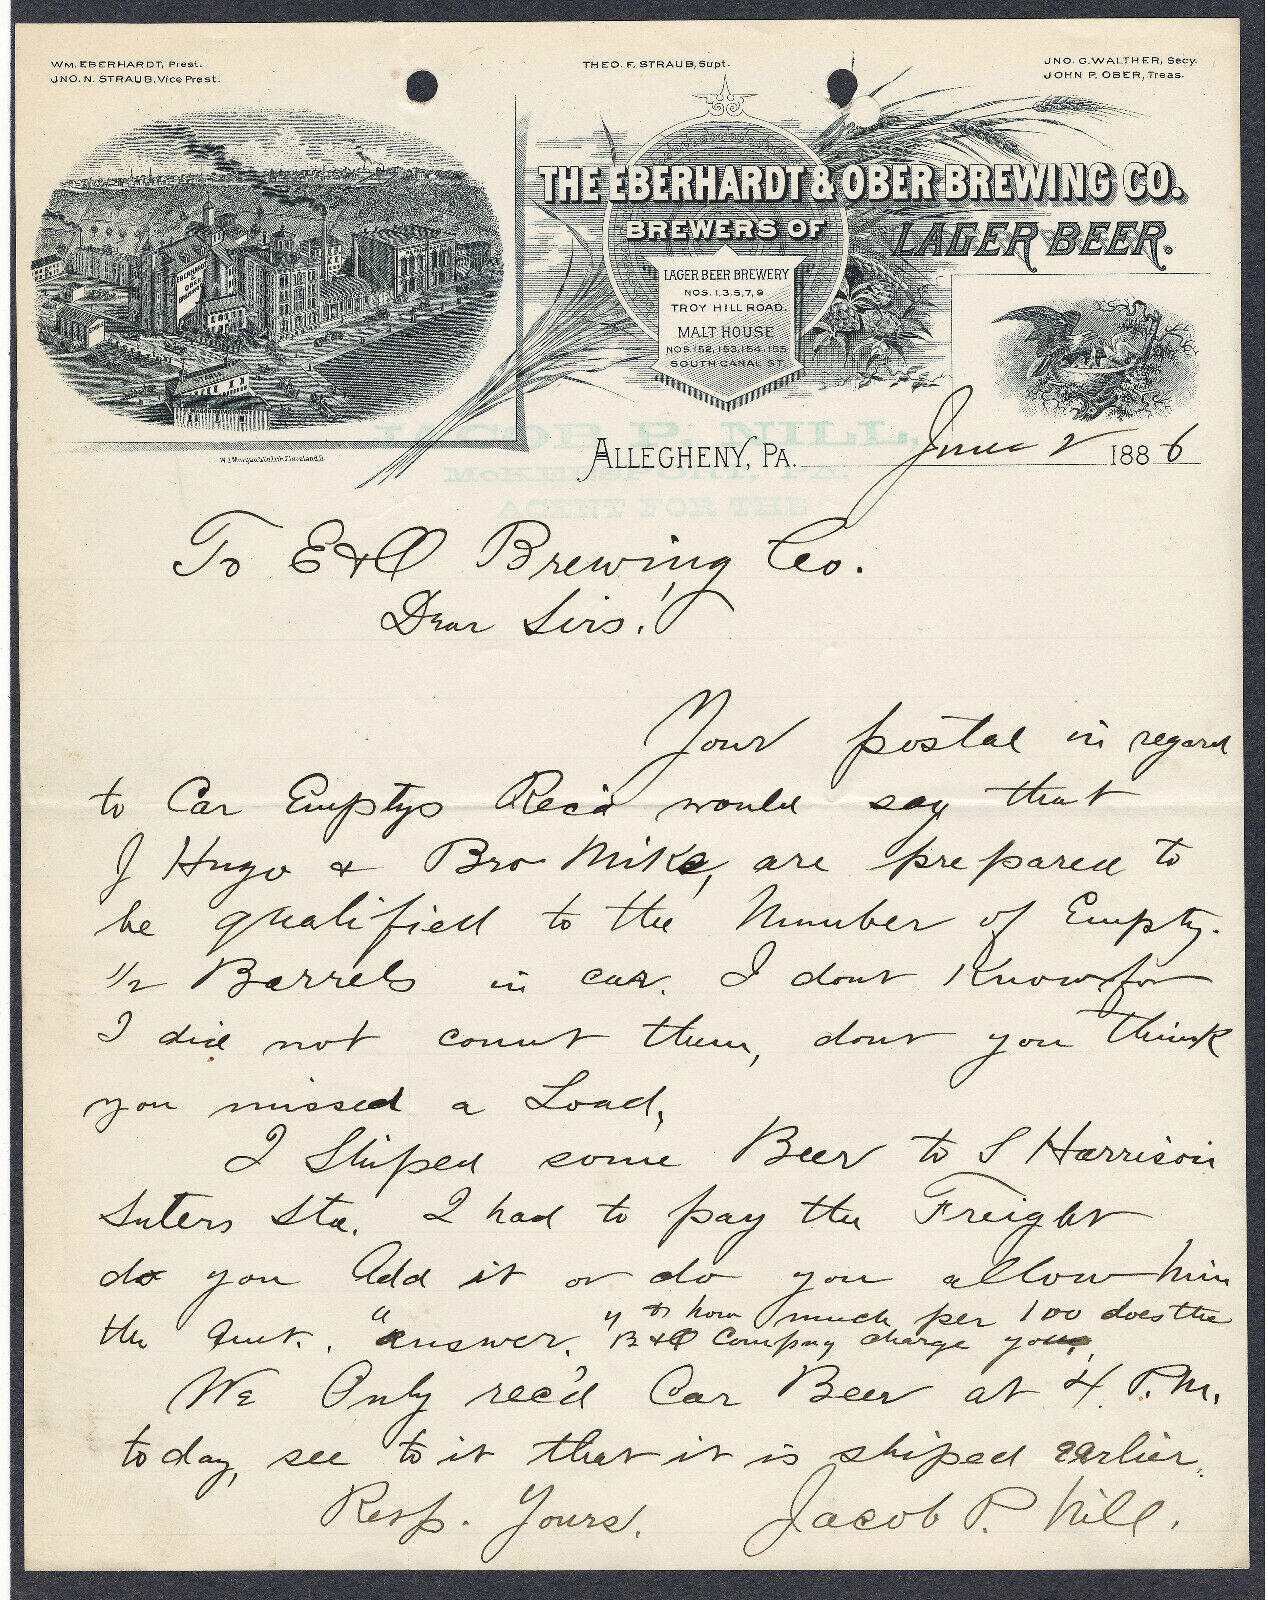 WM. EBERHARDT, Prest.
JNO. N. STRAUB, Vice Prest.
THEO. F. STRAUB, Supt.
JNO. G. WALTHER, Secy.
JOHN P. OBER, Treas.
THE EBERHARDT & OBER BREWING CO.
BREWERS OF
LAGER BEER.
LAGER BEER BREWERY
NOS. 1, 3, 5, 7, 9
TROY HILL ROAD.
MALT HOUSE
NOS. 152, 153, 154, 155
SOUTH CANAL ST.
EBERHARDT & OBER
JACOB P. NILL,
McKEESPORT, PA.
AGENT FOR THE
ALLEGHENY, PA. June 2 1886
To E & O Brewing Co.
Dear Sirs!
Your postal in regard
to Car Emptys Rec'd would say that
J Hugo & Bro Mike, are prepared to
be qualified to the Number of Empty.
1/2 Barrels in car. I dont Know for
I did not count them, dont you think
you missed a Load,
I Shiped some Beer to S Harrison
Suters Sta. I had to pay the Freight
do you Add it or do you allow him
the Amt. "answer." & how much per 100 does the
B & O Company charge you,
We Only rec'd Car Beer at 4 P.M.
today, see to it that it is shiped earlier.
Resp. Yours. Jacob P. Nill.